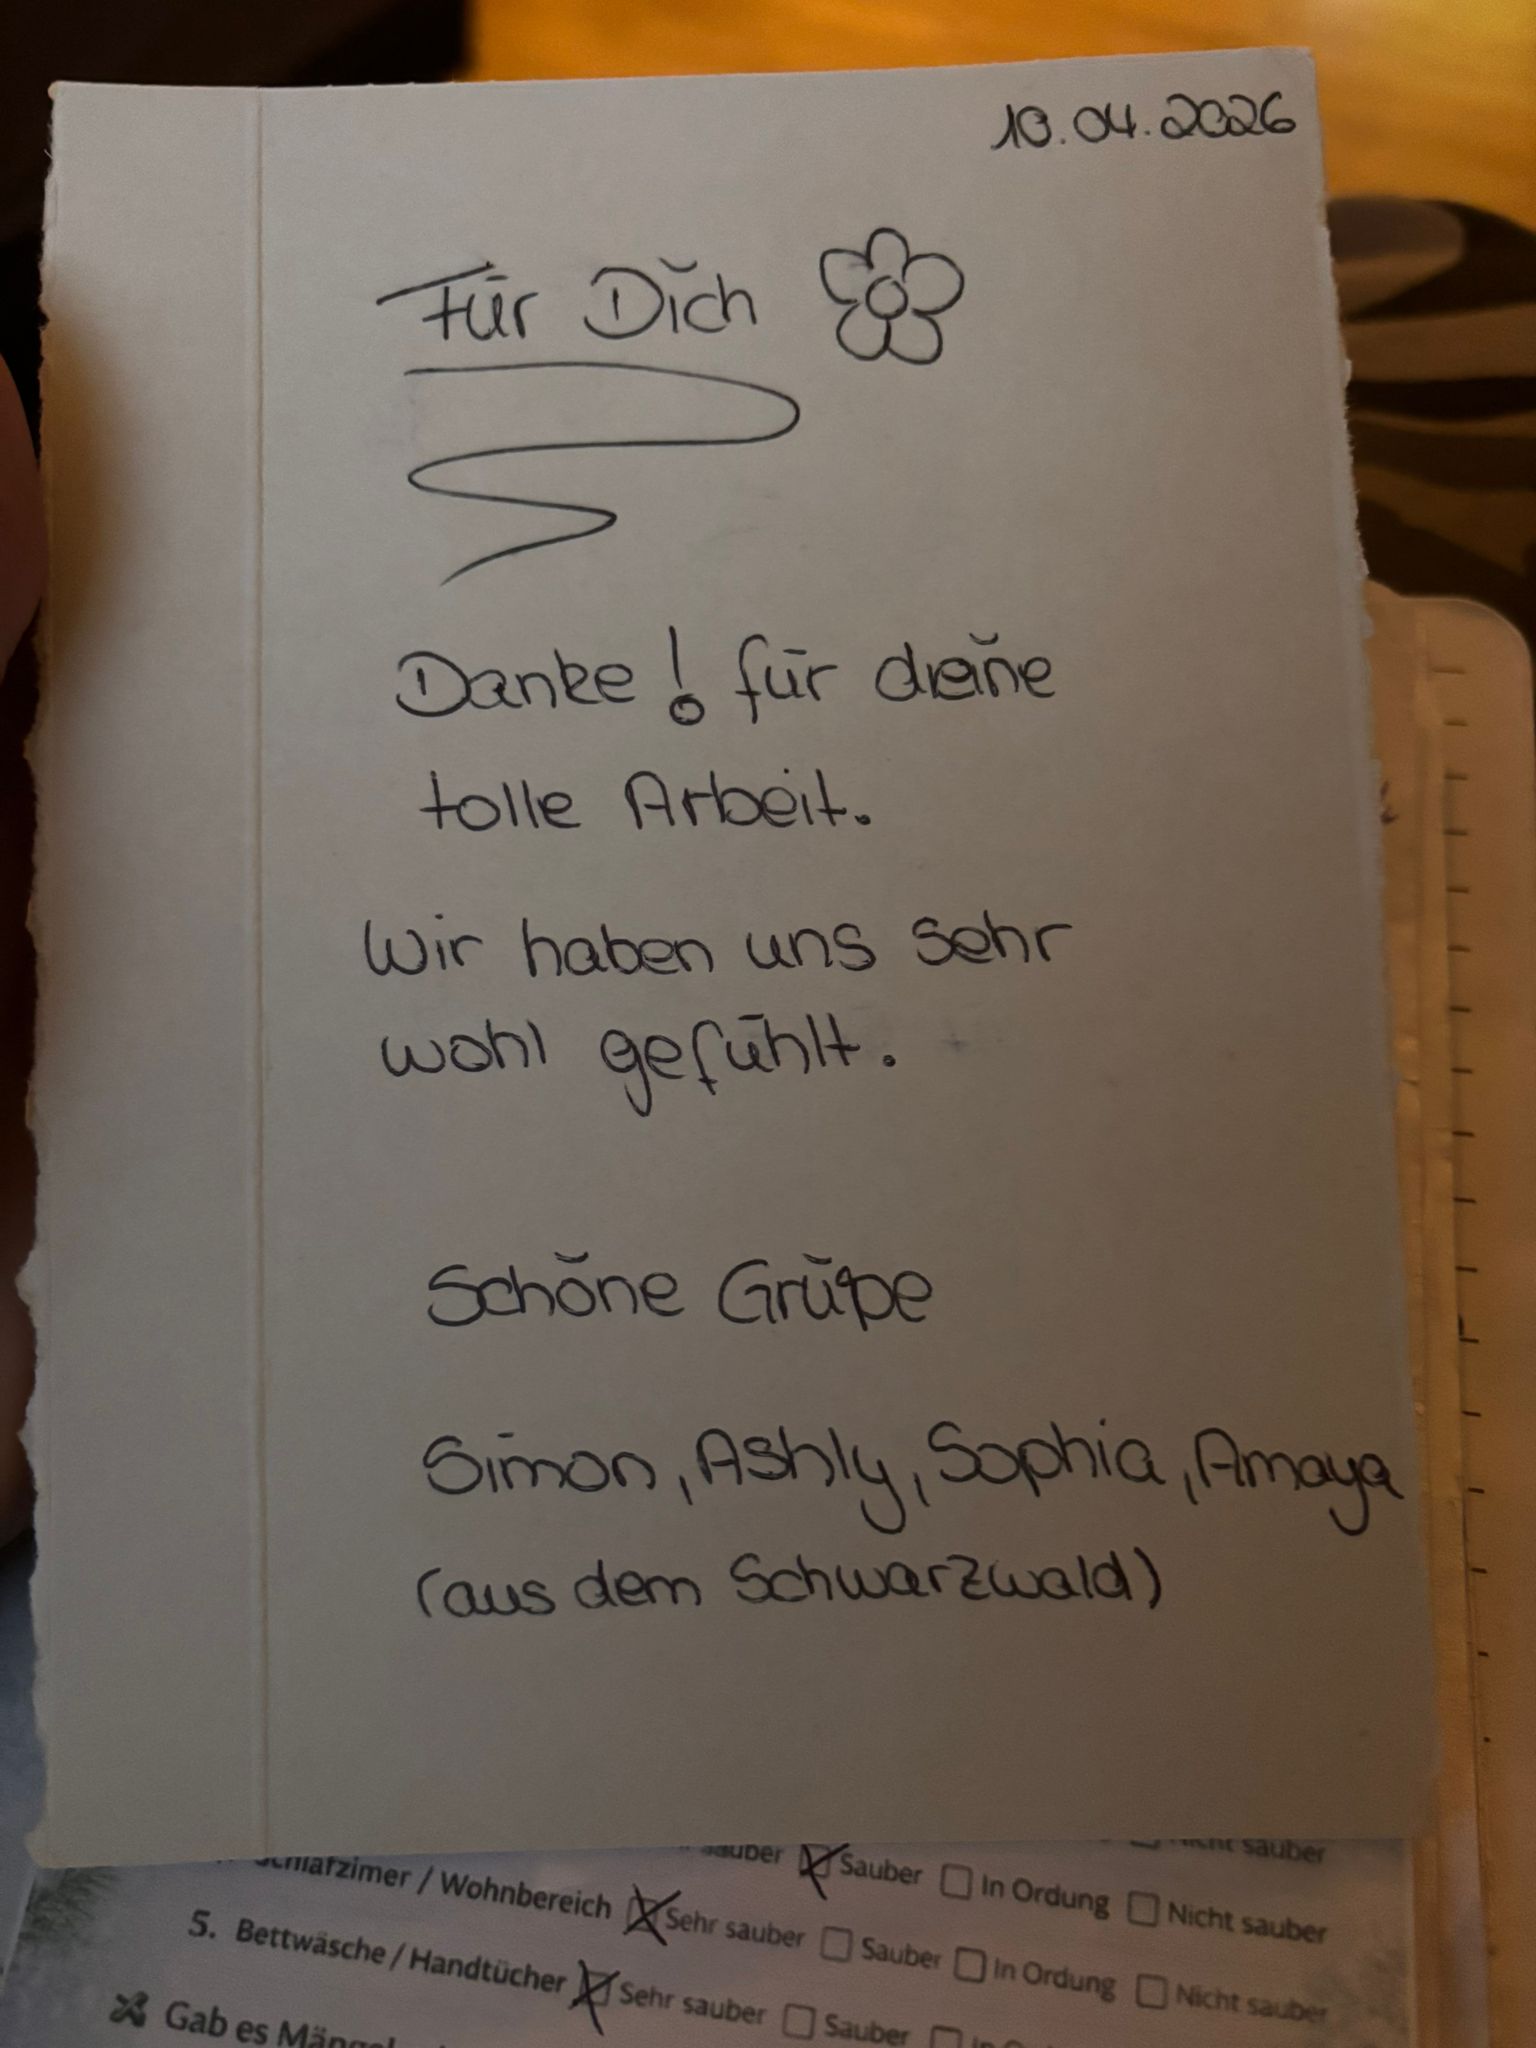 10.04.2026
Für Dich
Danke! für deine
tolle Arbeit.
Wir haben uns sehr
wohl gefühlt.
Schöne Grüße
Simon, Ashly, Sophia, Amaya
(aus dem Schwarzwald)
sauber Sauber In Ordung Nicht sauber
Schlafzimer / Wohnbereich Sehr sauber Sauber In Ordung Nicht sauber
5. Bettwäsche / Handtücher Sehr sauber Sauber
Gab es Mängel